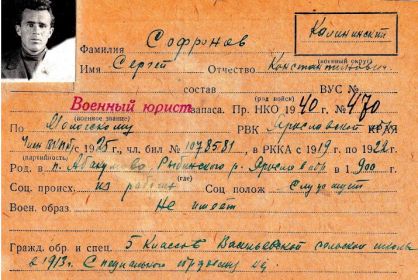 Калининский
(военный округ)
Фамилия Софронов
Имя Сергей Отчество Константинович
состав ВУС
(род войск)
Военный юрист запаса. Пр. НКО 1940 г. № 470
(военное звание)
По Мологскому РВК Ярославской
Член ВКП(б) с 1925 г., чл. бил № 1078581, в РККА с 1919 г. по 1922 г.
(партийность)
Род. в п. Рыбинского р. Яросл обр. в 1900 г.
(где)
Соц. происх. из рабочих Соц полож. Служащий
Военн. образ. Не имеет
Гражд. обр. и спец. 5 классов Васильевской сельской школы
в 1913 г. Специального